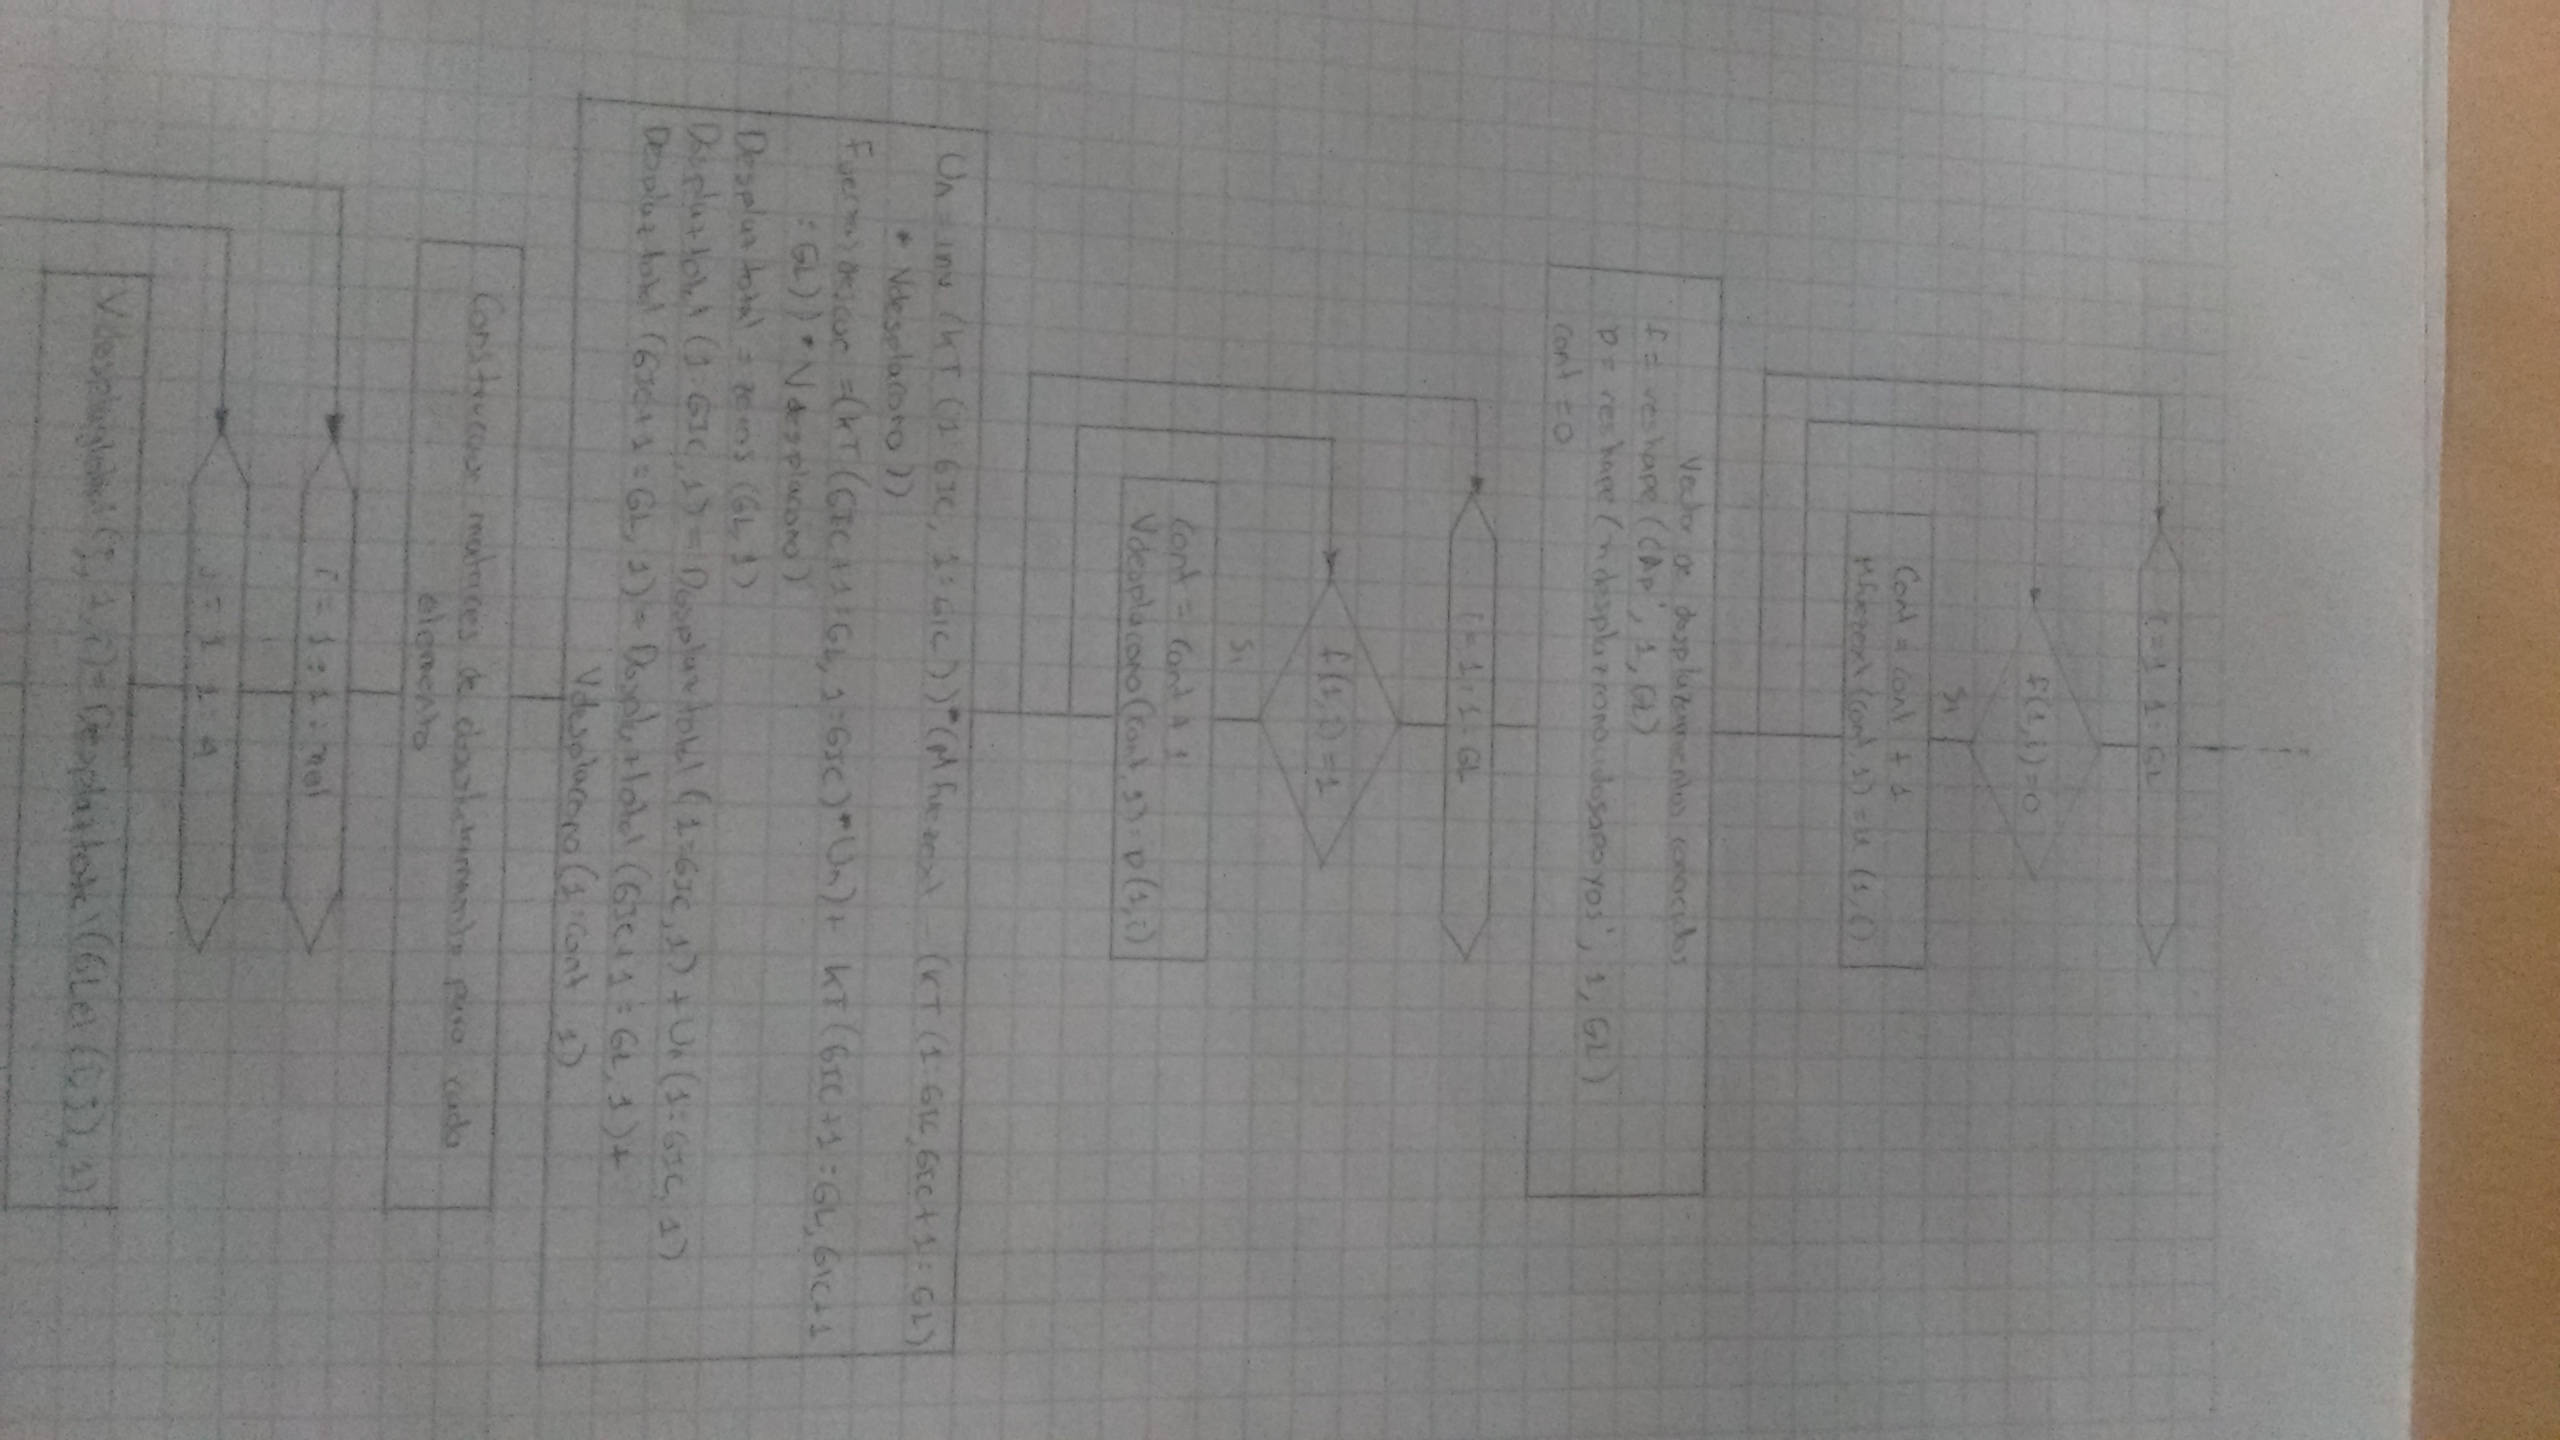 i = 1 : 1 : GL
f(1,i) = 0
Si
Cont = Cont + 1
(Cont, 1) = u (1, i)
Vector de desplazamientos conocidos
f = reshape (CAp', 1, GL)
p = reshape ( ', 1, GL)
Cont = 0
i = 1 : 1 : GL
f(1, i) = 1
Si
Cont = Cont + 1
Vdesplacono (Cont, 1) = p (1, i)
Un = inv (KT (1:GIC, 1:GIC)) * (MFuerzext - (KT (1:GIC, GIC+1:GL)
* Vdesplacono))
= (KT (GIC+1:GL, 1:GIC) * Un) + KT (GIC+1:GL, GIC+1
:GL)) * Vdesplacono)
Desplaztotal = zeros (GL, 1)
Desplaztotal (1:GIC, 1) = Desplaztotal (1:GIC, 1) + Un (1:GIC, 1)
Desplaztotal (GIC+1:GL, 1) = Desplaztotal (GIC+1:GL, 1) +
Vdesplacono (1:Cont, 1)
Construcción matrices de desplazamiento para cada
elemento
i = 1 : 1 : nel
j = 1 : 1 : 4
Vdesplaglobal (j, 1, i) = Desplaztotal (GLel (i, j), 1)